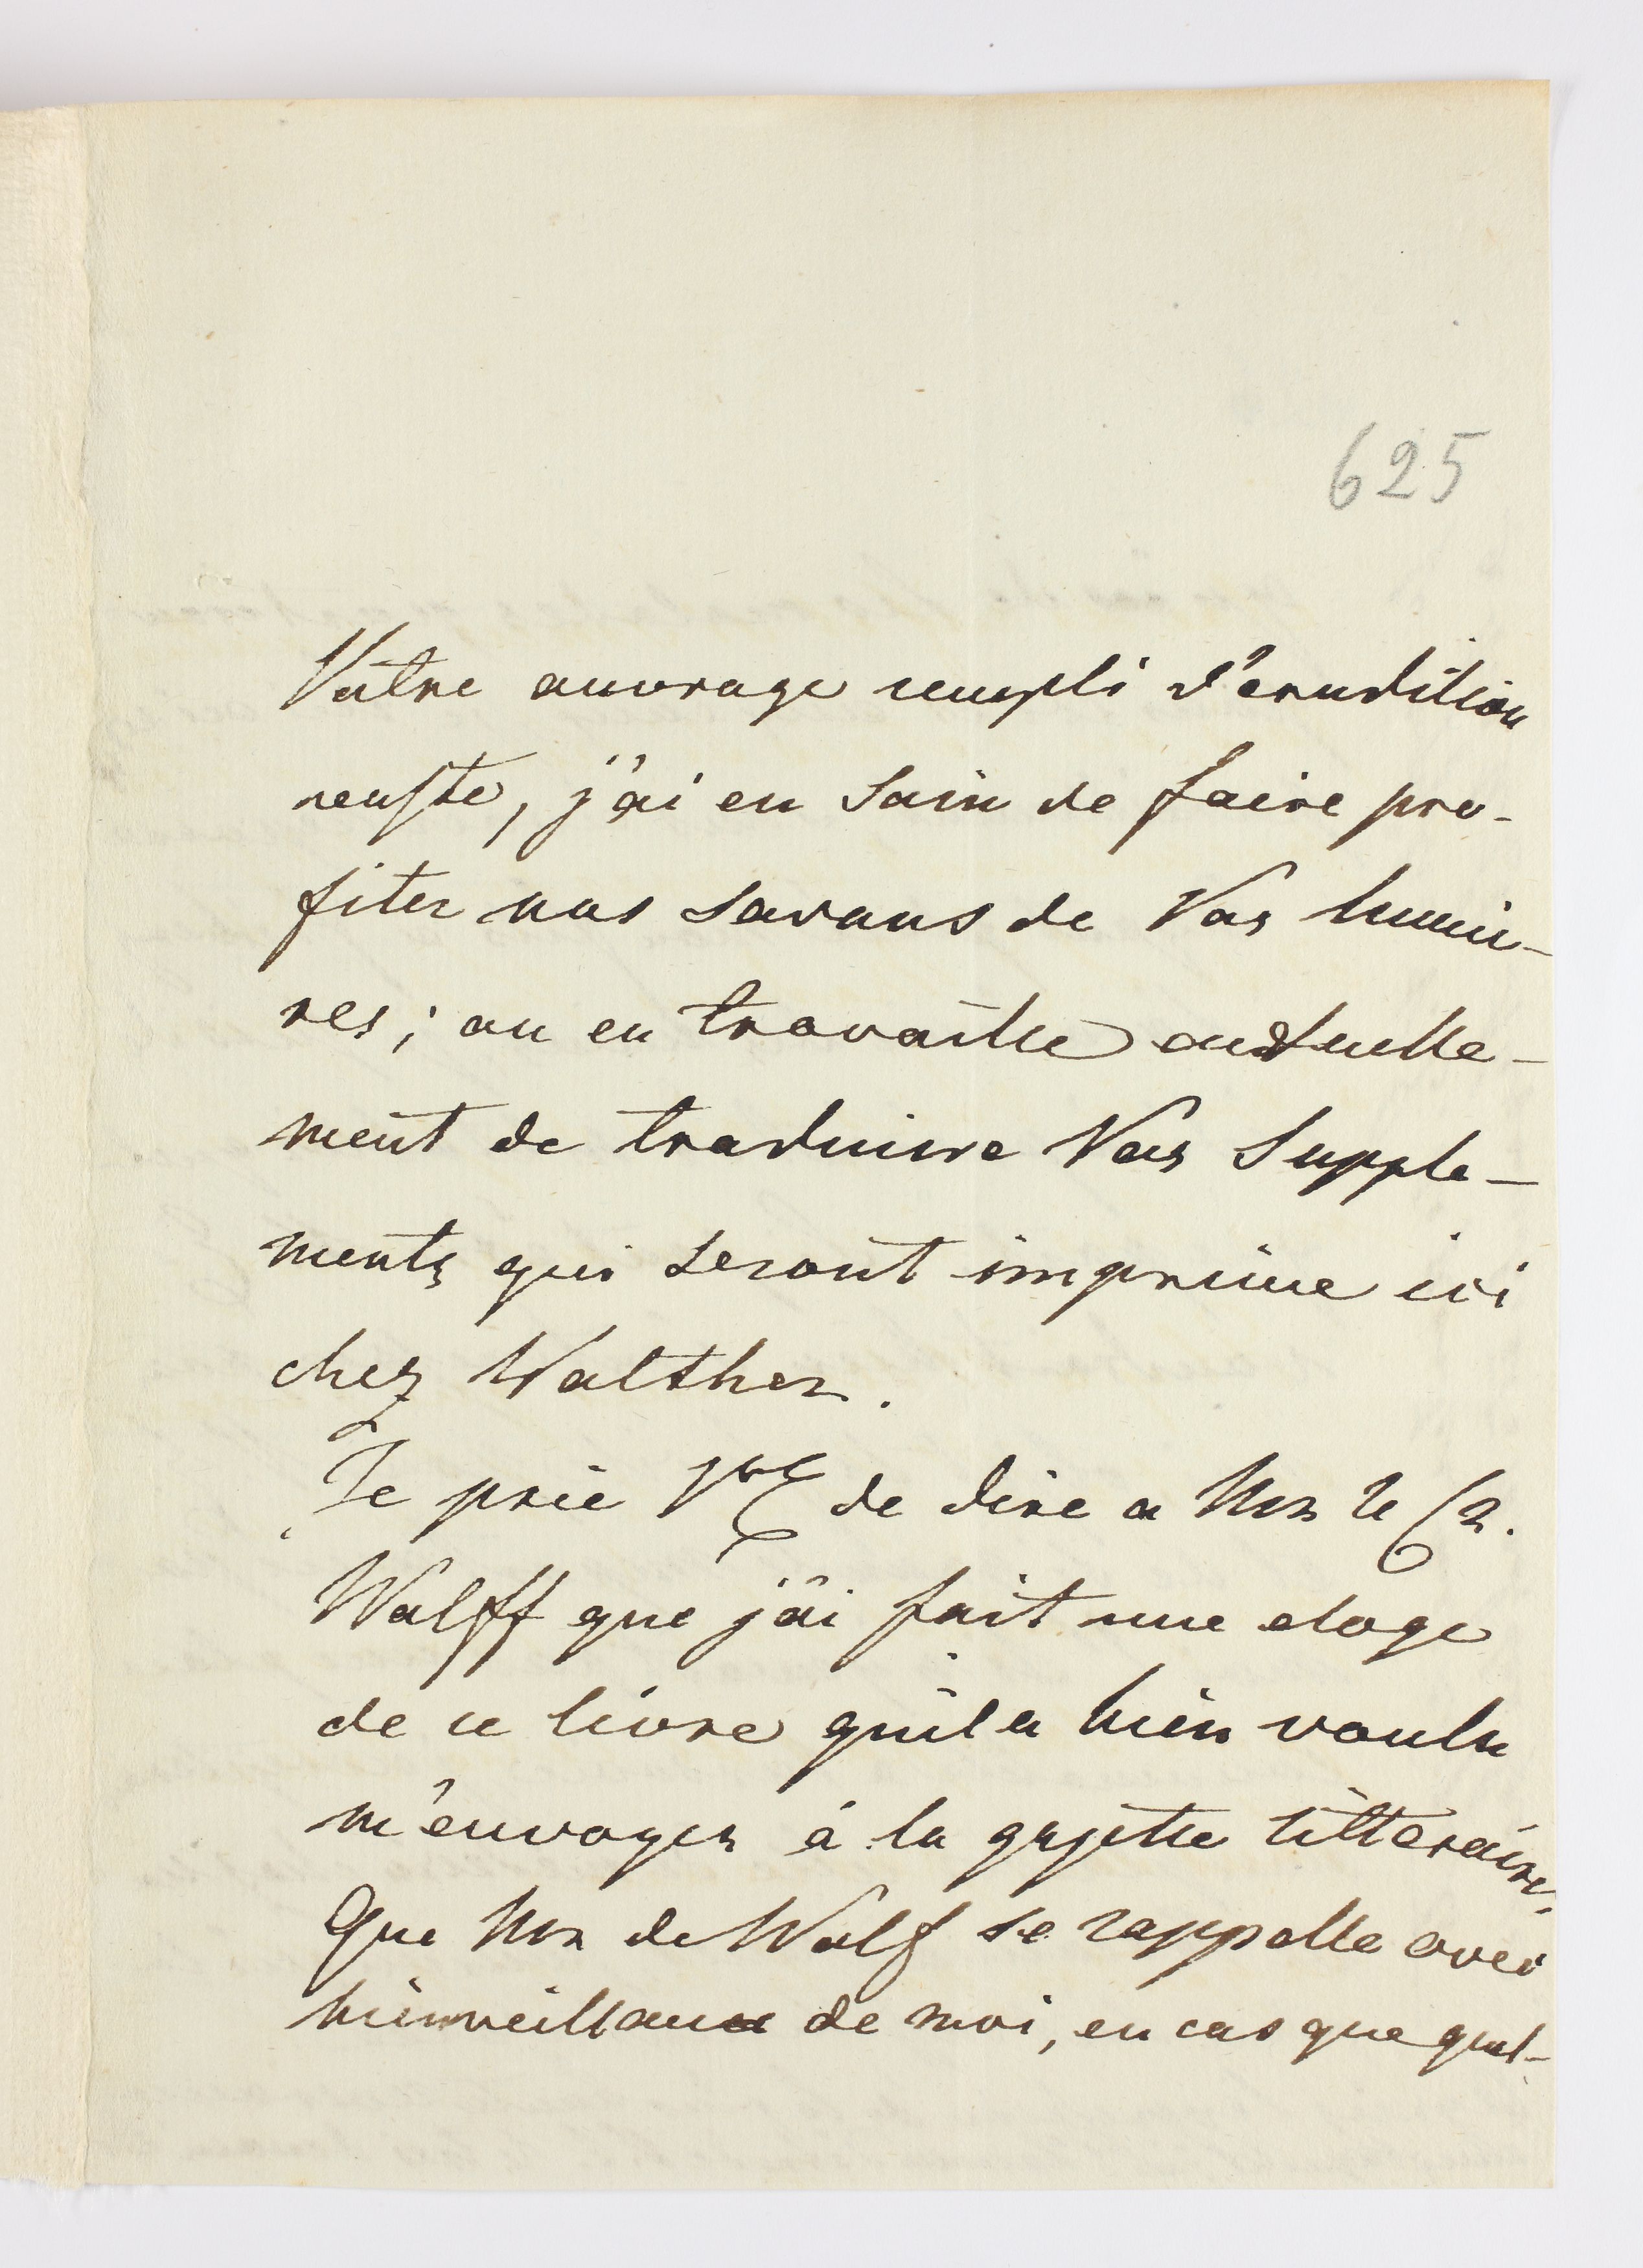 625
Votre ouvrage rempli d'erudition
reuste, j'ai eu soin de faire pro-
fiter nos savans de Vos lumie-
res; on en travaille actuelle-
ment de traduire Vos Supple-
ments qui seront imprime ici
chez Walther.
Je prie VE de dire a Mr le Cr.
Wolff que j'ai fait une eloge
de ce livre qu'il a bien voulu
m'envoyer à la gazette litteraire,
Que Mr de Wolf se rappelle avec
bienveillance de moi, en cas que quel-